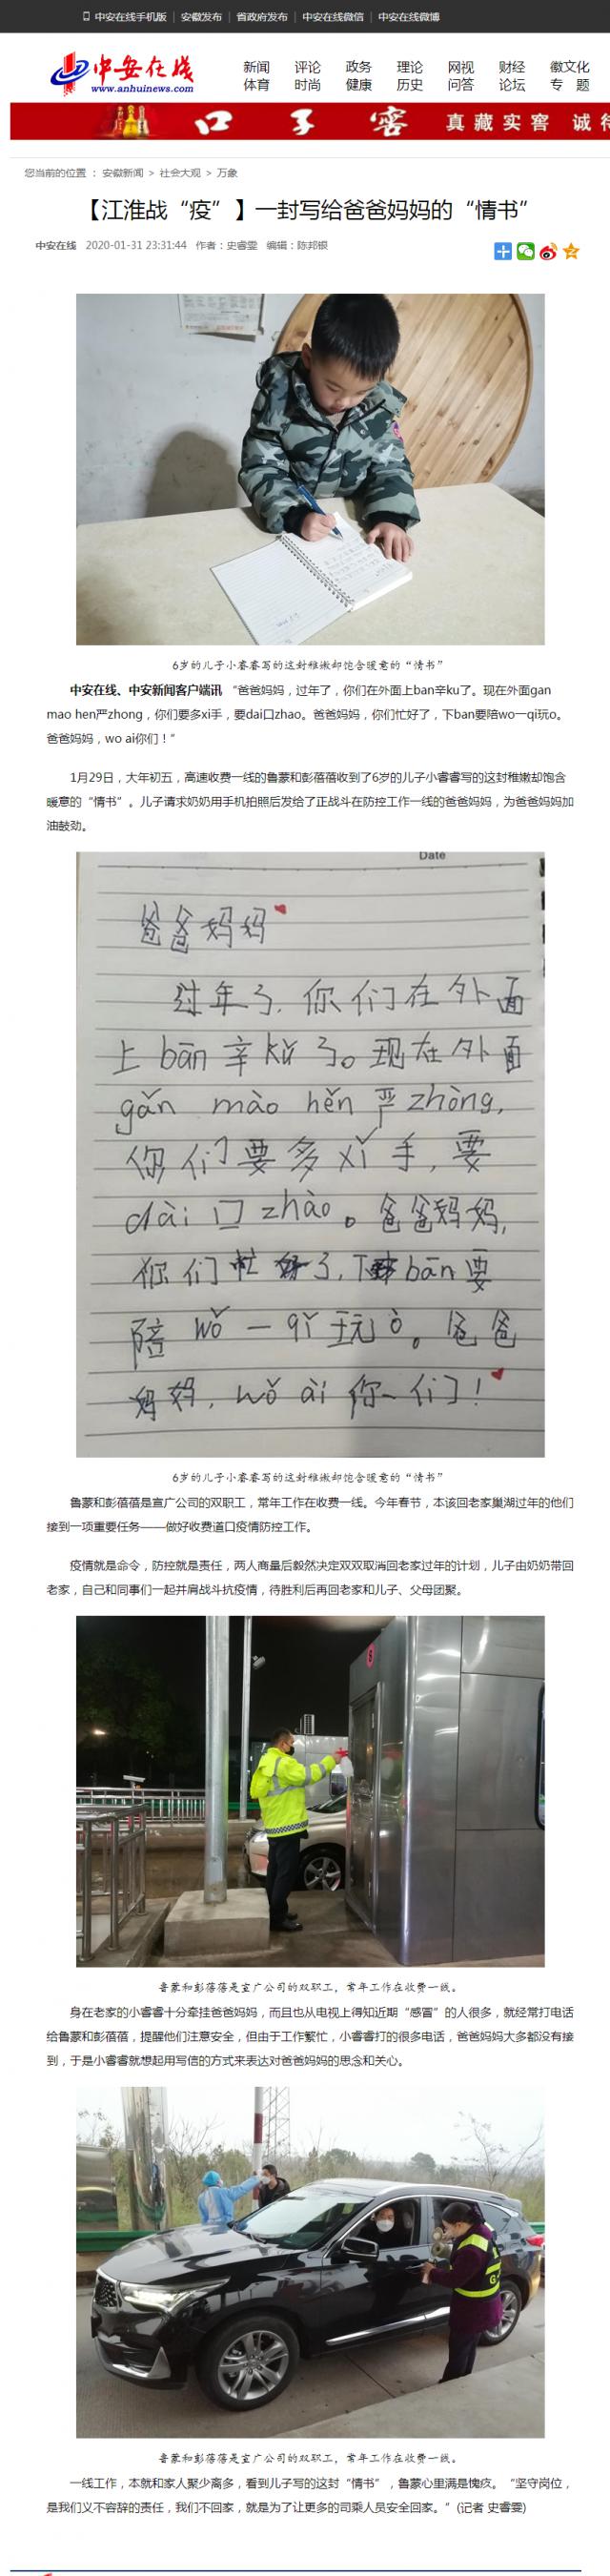 中安在线手机版 | 安徽发布 | 省政府发布 | 中安在线微信 | 中安在线微博
中安在线
www.anhuinews.com
新闻 评论 政务 理论 网视 财经 徽文化
体育 时尚 健康 历史 问答 论坛 专 题
口子窖 真藏实窖 诚待
您当前的位置 ： 安徽新闻 > 社会大观 > 万象
【江淮战“疫”】一封写给爸爸妈妈的“情书”
中安在线 2020-01-31 23:31:44 作者：史睿雯 编辑：陈邦银
6岁的儿子小睿睿写的这封稚嫩却饱含暖意的“情书”
中安在线、中安新闻客户端讯 “爸爸妈妈，过年了，你们在外面上ban辛ku了。现在外面gan
mao hen严zhong，你们要多xi手，要dai口zhao。爸爸妈妈，你们忙好了，下ban要陪wo一qi玩o。
爸爸妈妈，wo ai你们！”
1月29日，大年初五，高速收费一线的鲁蒙和彭蓓蓓收到了6岁的儿子小睿睿写的这封稚嫩却饱含
暖意的“情书”。儿子请求奶奶用手机拍照后发给了正战斗在防控工作一线的爸爸妈妈，为爸爸妈妈加
油鼓劲。
Date
爸爸妈妈
过年了，你们在外面
上bān辛kǔ了。现在外面
gǎn mào hěn严zhòng，
你们要多xǐ手，要
dài口zhào。爸爸妈妈，
你们忙好了，下bān要
陪wǒ一qǐ玩ò。爸爸
妈妈，wǒ ài 你们！
6岁的儿子小睿睿写的这封稚嫩却饱含暖意的“情书”
鲁蒙和彭蓓蓓是宣广公司的双职工，常年工作在收费一线。今年春节，本该回老家巢湖过年的他们
接到一项重要任务——做好收费道口疫情防控工作。
疫情就是命令，防控就是责任，两人商量后毅然决定双双取消回老家过年的计划，儿子由奶奶带回
老家，自己和同事们一起并肩战斗抗疫情，待胜利后再回老家和儿子、父母团聚。
鲁蒙和彭蓓蓓是宣广公司的双职工，常年工作在收费一线。
身在老家的小睿睿十分牵挂爸爸妈妈，而且也从电视上得知近期“感冒”的人很多，就经常打电话
给鲁蒙和彭蓓蓓，提醒他们注意安全，但由于工作繁忙，小睿睿打的很多电话，爸爸妈妈大多都没有接
到，于是小睿睿就想起用写信的方式来表达对爸爸妈妈的思念和关心。
鲁蒙和彭蓓蓓是宣广公司的双职工，常年工作在收费一线。
一线工作，本就和家人聚少离多，看到儿子写的这封“情书”，鲁蒙心里满是愧疚。“坚守岗位，
是我们义不容辞的责任，我们不回家，就是为了让更多的司乘人员安全回家。”(记者 史睿雯)